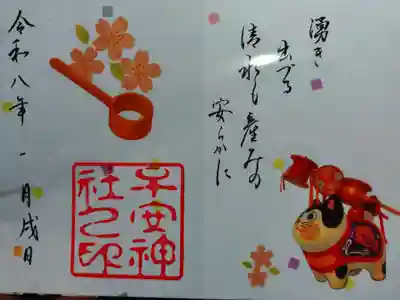 湧き
出づる
清水も産みの
安らかに
子安神
社之印
令和八年 一月戌日